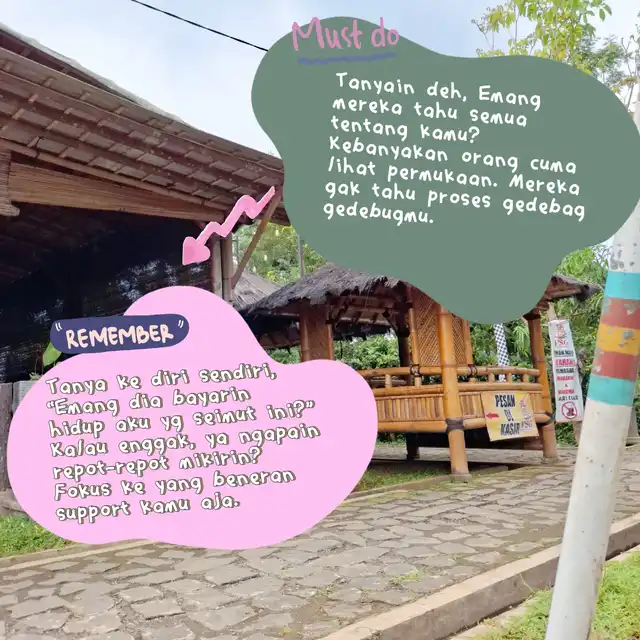 Must do
Tanyain deh, Emang
mereka tahu semua
tentang kamu?
Kebanyakan orang cuma
lihat permukaan. Mereka
gak tahu proses gedebag
gedebugmu.
"REMEMBER"
Tanya ke diri sendiri,
"Emang dia bayarin
hidup aku yg seimut ini?"
Kalau enggak, ya ngapain
repot-repot mikirin?
Fokus ke yang beneran
support kamu aja.
PESAN
DI
KASIR